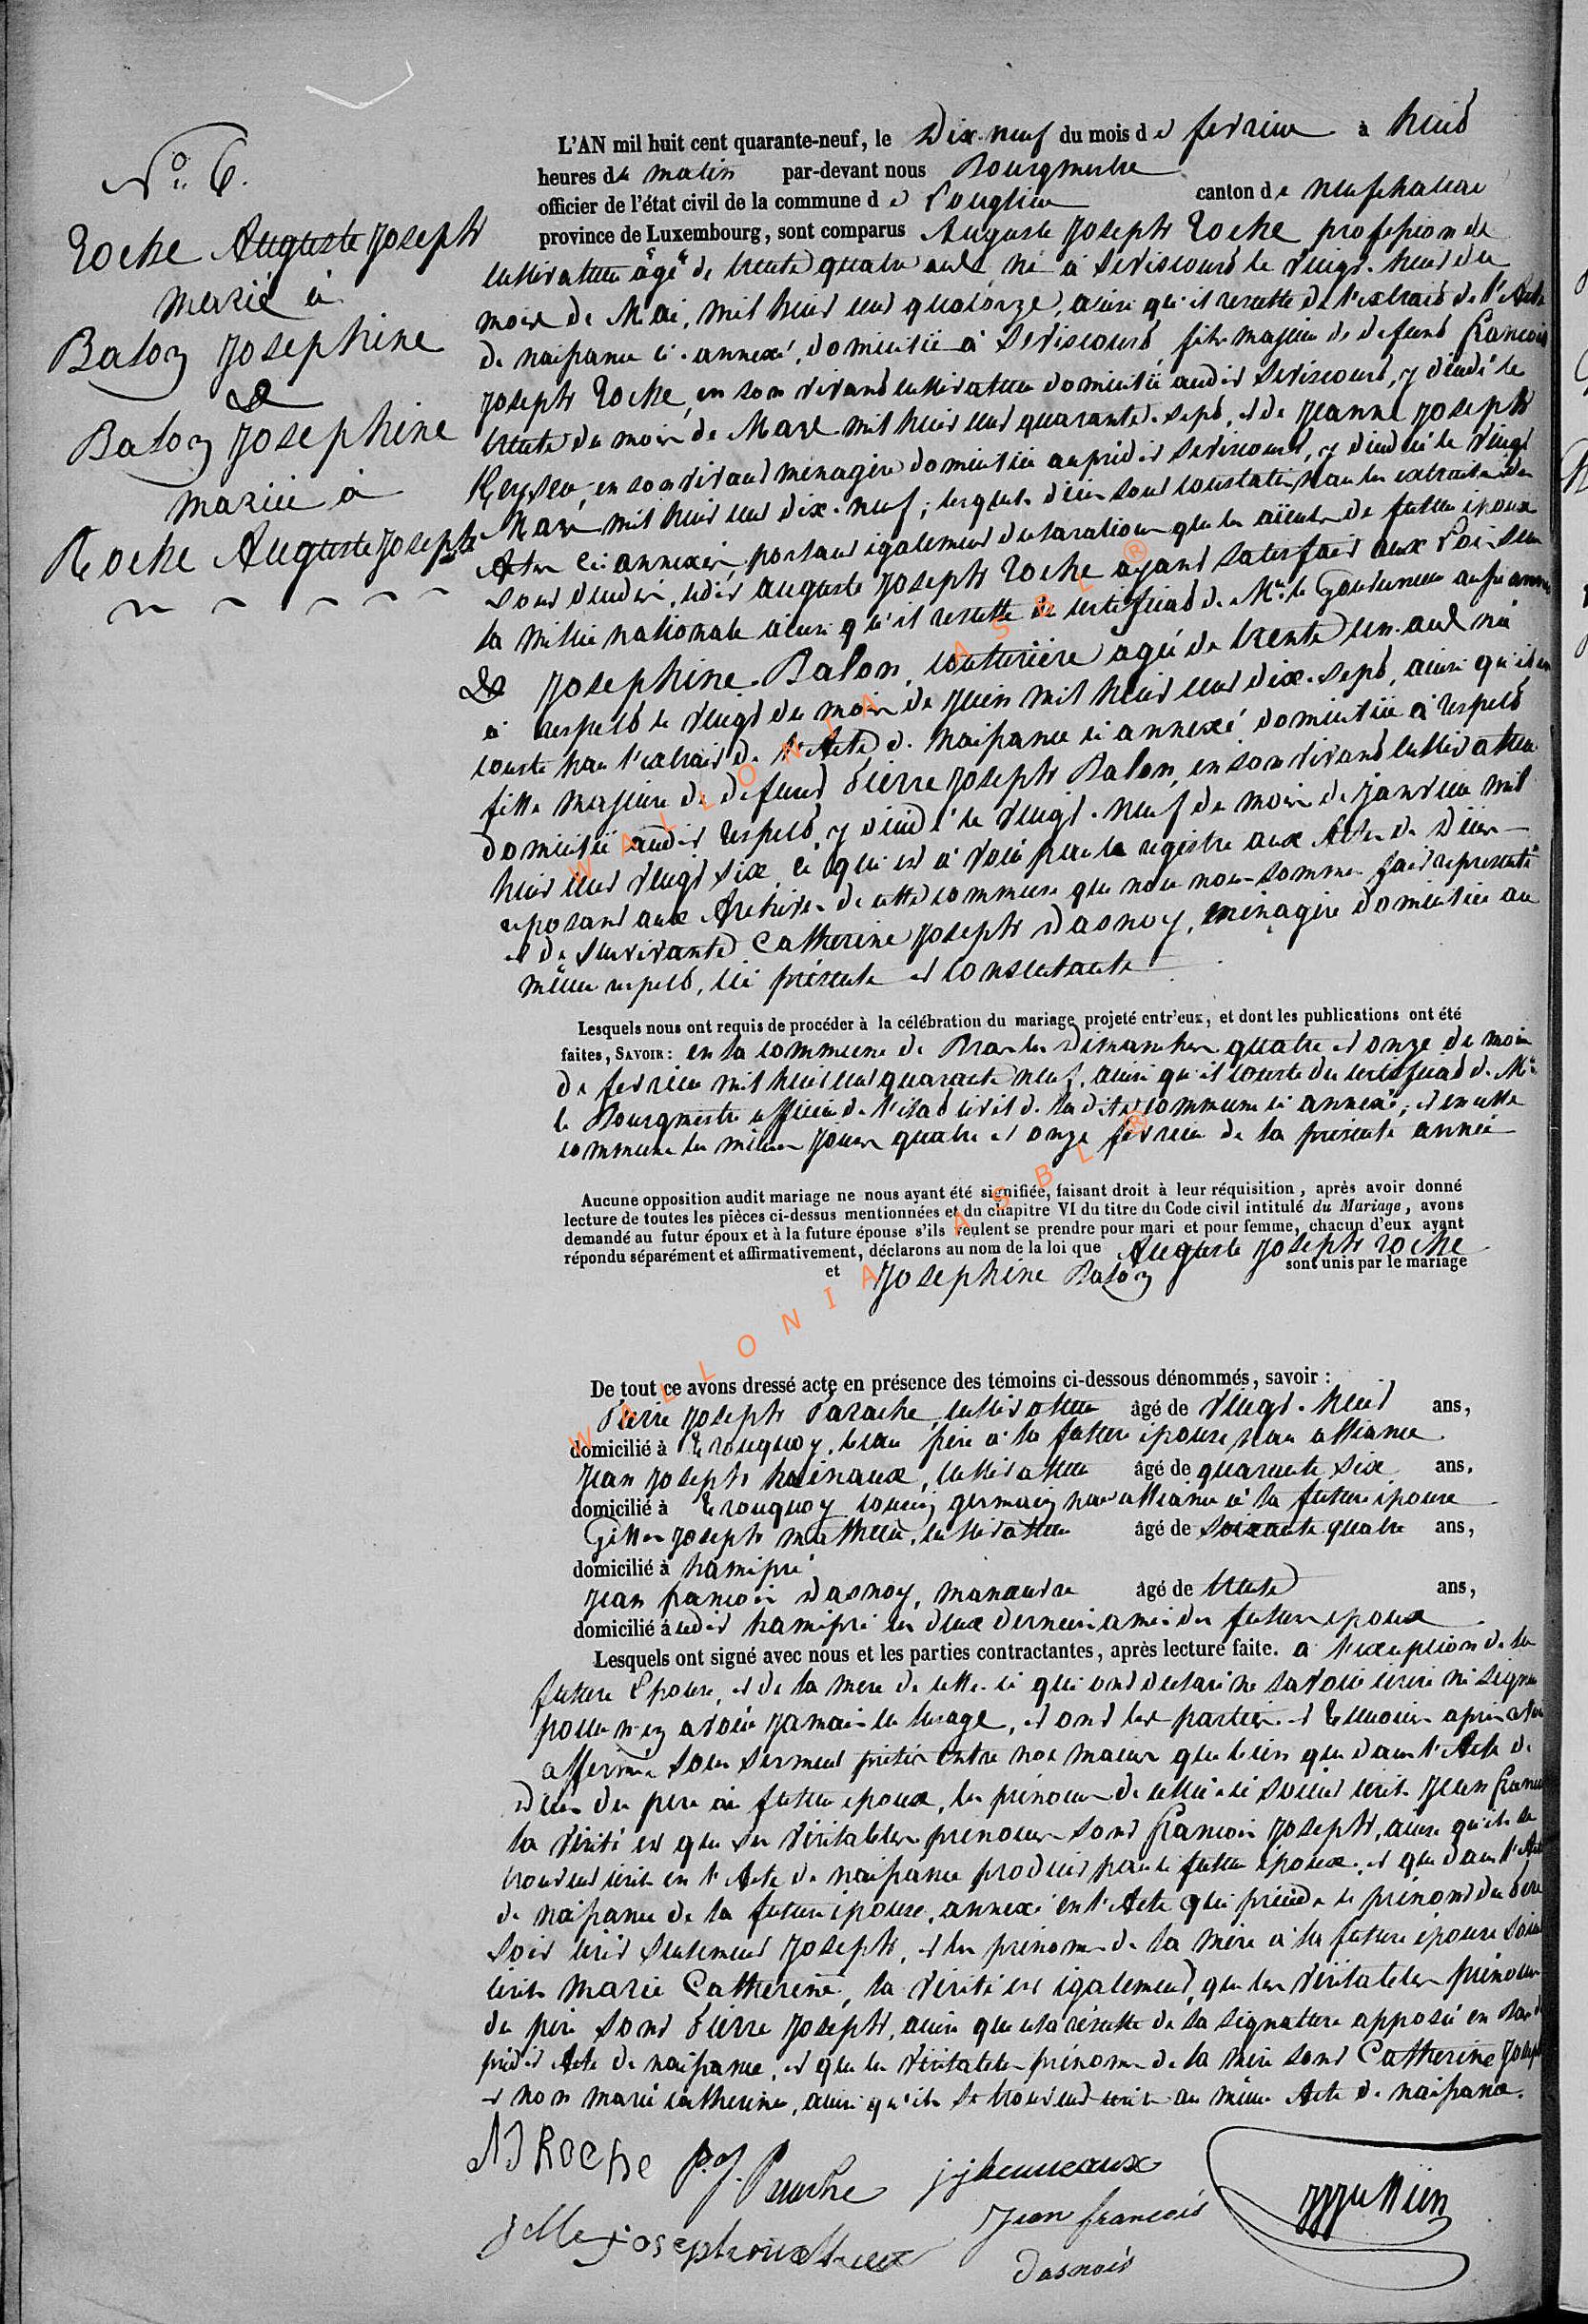 N° 6.
Roche Auguste Joseph
marié à
Balon Josephine
&
Balon Josephine
mariée à
Roche Auguste Joseph
L'AN mil huit cent quarante-neuf, le Dix neuf du mois de fevrier à huit
heures du matin par-devant nous Bourgmestre
officier de l'état civil de la commune de Longlier canton de neufchateau
province de Luxembourg, sont comparus Auguste Joseph Roche profession de
cultivateur âgé de trente quatre ans né à Seviscourt le vingt-huit du
mois de Mai, mil huit cent quatorze, ainsi qu'il resulte de l'extrait de l'Acte
de naissance ci-annexé, domicilié à Seviscourt, fils majeur de defunt Francois
Joseph Roche, en son vivant cultivateur domicilié audit Seviscourt, y décédé le
trente du mois de Mars mil huit cent quarante-sept, et de Jeanne Joseph
en son vivant menagère domiciliée au prédit Seviscourt, y décédée le vingt
Mars mil huit cent dix-neuf; lesquels décès sont constatés par les extraits des
Actes ci-annexés, portant également declaration que les aïeuls de futur époux
sont décédés, ledit Auguste Joseph Roche ayant satisfait aux Lois sur
la milice nationale ainsi qu'il resulte du certificat de Mr. le Gouverneur aussi annexé
& Josephine Balon, couturière agée de trente un ans née
à respelt le vingt du mois de Juin mil huit cent dix-sept, ainsi qu'il en
conste par l'extrait de l'Acte de naissance ci annexé, domiciliée à respelt
fille majeure de defunt Pierre Joseph Balon, en son vivant cultivateur
domicilié audit respelt, y décédé le vingt-neuf du mois de janvier mil
huit cent vingt six, ce qui est à voir par le registre aux Actes de Décès
reposant aux Archives de cette commune que nous nous sommes fait representé
et de survivante Catherine Joseph Dasnoy, ménagère domiciliée au
même respelt, ici présente et consentante
Lesquels nous ont requis de procéder à la célébration du mariage projeté entr'eux, et dont les publications ont été
faites, SAVOIR: en la commune de Bras les Dimanches quatre et onze du mois
de fevrier mil huit cent quarante neuf, ainsi qu'il conste du certificat de Mr.
le Bourgmestre officier de l'état civil de ladite commune ci annexé, et en cette
commune les mêmes jours quatre et onze fevrier de la presente année
Aucune opposition audit mariage ne nous ayant été signifiée, faisant droit à leur réquisition, après avoir donné
lecture de toutes les pièces ci-dessus mentionnées et du chapitre VI du titre du Code civil intitulé du Mariage, avons
demandé au futur époux et à la future épouse s'ils veulent se prendre pour mari et pour femme, chacun d'eux ayant
répondu séparément et affirmativement, déclarons au nom de la loi que Auguste Joseph Roche
et Josephine Balon sont unis par le mariage
De tout ce avons dressé acte en présence des témoins ci-dessous dénommés, savoir:
Pierre Joseph Parache, cultivateur âgé de vingt-huit ans,
domicilié à tronquoy, beau frère à la future épouse par alliance
Jean Joseph hainaux, cultivateur âgé de quarante six ans,
domicilié à tronquoy cousin germain par alliance à la future épouse
Gilles Joseph mathieu, cultivateur âgé de soixante quatre ans,
domicilié à hamipré
Jean francois Dasnoy, manoeuvre âgé de trente ans,
domicilié à udit hamipré les deux derniers amis des futurs epoux
Lesquels ont signé avec nous et les parties contractantes, après lecture faite. a l'exception de la
future Epouse, et de la mere de celle-ci qui ont declaré ne savoir écrire ni signer
pour n'en avoir jamais eu l'usage, et ont les parties et temoins après avoir
affirmé sous serment prêté entre nos mains que bien que dans l'Acte de
Décès du pere au futur epoux, les prénoms de celui-ci soient ecrits Jean Francois
la vérité est que ses véritables prenoms sont Francois Joseph, ainsi qu'ils se
trouvent ecrits en l'Acte de naissance produit par le futur époux, et que dans l'Acte
de naissance de la future épouse, annexé en l'Acte qui précède le prénom du père
soit ecrit seulement Joseph, et les prénoms de la mère à la future épouse soient
écrits Marie Catherine, la vérité est également, que les véritables prénoms
du père sont Pierre Joseph, ainsi que cela résulte de sa signature apposée en bas du
prédit Acte de naissance, et que les véritables prénoms de la mère sont Catherine Joseph
et non marie catherine, ainsi qu'ils se trouvent ecrits au même Acte de naissance.
AJ Roche P.J. Parache jjhenneaux
Jean francois
dasnois
WALLONIA ASBL ®
WALLONIA ASBL ®